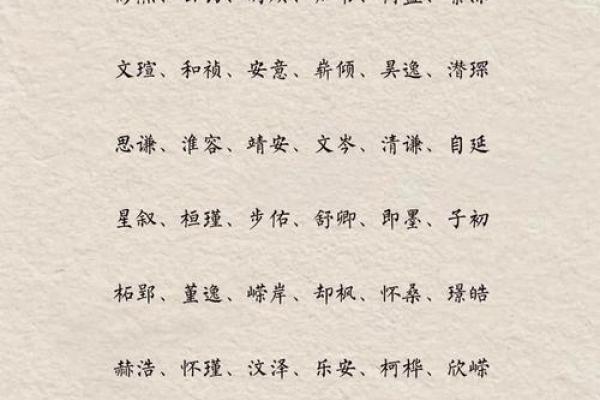 文瑄、和祯、安意、崭倾、昊逸、潜琛
思谦、淮容、靖安、文岑、清谦、自延
星叙、桓瑾、步佑、舒卿、即墨、子初
柘郢、董逸、嵘岸、却枫、怀桑、璟皓
赫浩、怀瑾、汶泽、乐安、柯桦、欣嵘